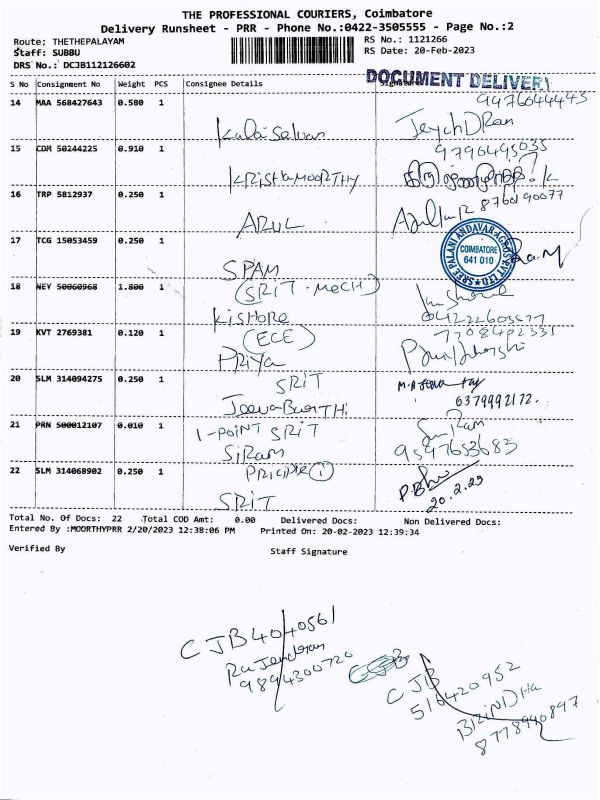 THE PROFESSIONAL COURIERS, Coimbatore
Delivery Runsheet - PRR - Phone No.:0422-3505555 - Page No.:2
Route; THETHEPALAYAM
RS No.: 1121266
Staff: SUBBU
RS Date: 20-Feb-2023
DRS No.: DCJB112126602
DOCUMENT DELIVERY
S No Consignment No Weight PCS Consignee Details
14 MAA 568427643 0.580 1
9976044443
Kalaiselvan
15 CDM 50244225 0.910 1
9796495035
KRISHNAMOORTHY
16 TRP 5812937 0.250 1
8760190077
ARUL
17 TCG 15053459 0.250 1
SREE PALANI ANDAVAR AGROS PVT LTD
COIMBATORE
641 010
SPAM
18 NEY 50060968 1.800 1
(SRIT - MECH)
KISHORE
19 KVT 2769381 0.120 1
7708492331
(ECE)
PRIYA
20 SLM 314094275 0.250 1
SRIT
6379992172.
JeevaBharthi
21 PRN 500012107 0.010 1
1-POINT SRIT
SiRam
9597653683
22 SLM 314068902 0.250 1
SRIT
20.2.23
Total No. Of Docs: 22 Total COD Amt: 0.00 Delivered Docs: Non Delivered Docs:
Entered By :MOORTHYPRR 2/20/2023 12:38:06 PM Printed On: 20-02-2023 12:39:34
Verified By
Staff Signature
CJB4040561
Rajendran
9894300720
CJB
516420952
BRINDHA
8778940897